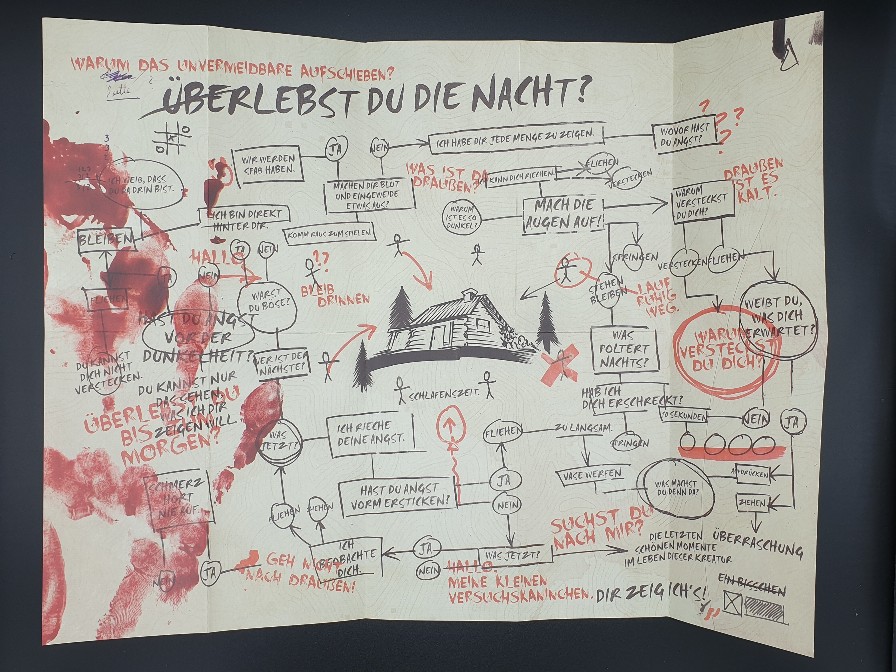 WARUM DAS UNVERMEIDBARE AUFSCHIEBEN?
ÜBERLEBST DU DIE NACHT?
WIR WERDEN
SPAß HABEN.
JA
NEIN
ICH HABE DIR JEDE MENGE ZU ZEIGEN.
WOVOR HAST
DU ANGST?
? ? ?
ICH WEIß, DASS
DU DA DRIN BIST.
MACHEN DIR BLUT
UND EINGEWEIDE
ETWAS AUS?
WAS IST DA
DRAUßEN?
KANN DICH RIECHEN
FLIEHEN
VERSTECKEN
DRAUßEN
IST ES
KALT.
WARUM
VERSTECKST
DU DICH?
ICH BIN DIREKT
HINTER DIR.
WARUM
IST ES SO
DUNKEL?
MACH DIE
AUGEN AUF!
BLEIBEN
KOMM RAUS ZUM SPIELEN
HALLO
JA
NEIN
NEIN
??
BLEIB
DRINNEN
SPRINGEN
VERSTECKEN
FLIEHEN
FLIEHEN
WARST
DU BÖSE?
STEHEN
BLEIBEN
LAUF
RUHIG
WEG.
WEIßT DU,
WAS DICH
ERWARTET?
HAST DU ANGST
VOR DER
DUNKELHEIT?
WARUM
VERSTECKST
DU DICH?
DU KANNST
DICH NICHT
VERSTECKEN.
WER IST DER
NÄCHSTE?
WAS
POLTERT
NACHTS?
DU KANNST NUR
DASTEHEN,
WAS ICH DIR
ZEIGEN WILL.
SCHLAFENSZEIT
HAB ICH
DICH ERSCHRECKT?
ÜBERLEBST DU
BIS
MORGEN?
10 SEKUNDEN
NEIN
JA
WAS
JETZT?
ICH RIECHE
DEINE ANGST.
FLIEHEN
ZU LANGSAM.
SPRINGEN
SCHMERZ
HÖRT
NIE AUF.
HAST DU ANGST
VORM ERSTICKEN?
JA
NEIN
VASE WERFEN
WAS MACHST
DU DENN DA?
ABDRÜCKEN
ZIEHEN
FLIEHEN
ZIEHEN
SUCHST DU
NACH MIR?
DIE LETZTEN
SCHÖNEN MOMENTE
IM LEBEN DIESER KREATUR
ÜBERRASCHUNG
ICH
BEOBACHTE
DICH.
JA
WAS JETZT?
NEIN
NEIN
JA
GEH NICHT
NACH DRAUßEN!
HALLO,
MEINE KLEINEN
VERSUCHSKANINCHEN.
DIR ZEIG ICH'S!
EIN BISSCHEN